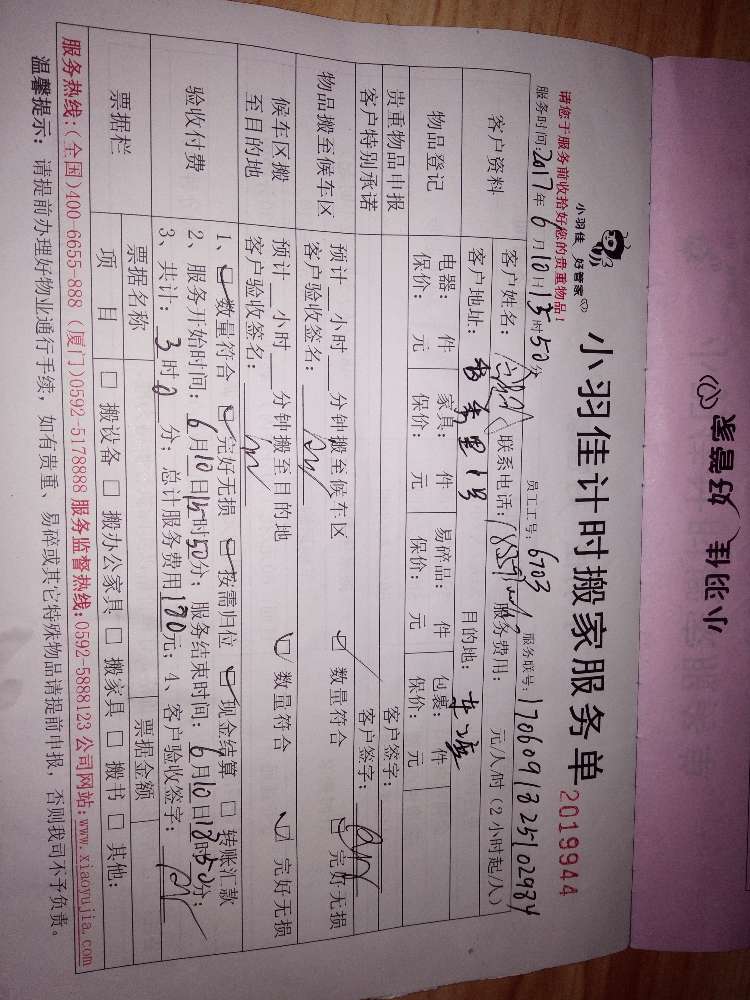 小羽佳 好管家
小羽佳 好管家
小羽佳计时搬家服务单 2019944
请您于服务前收拾好您的贵重物品！
服务时间:2017年6月10日13时50分 员工工号:6703 服务联号:1706091825102984
客户资料 客户姓名: 联系电话: 服务费用: 元/人/时（2小时起/人）
客户地址: 1号 目的地:
物品登记 电器: 件 家具: 件 易碎品: 件 包裹: 件
保价: 元 保价: 元 保价: 元 保价: 元
贵重物品申报 客户签字:
客户特别承诺 客户签字:
物品搬至候车区 预计 小时 分钟搬至候车区 数量符合 完好无损
客户验收签名:
候车区搬至目的地 预计 小时 分钟搬至目的地 数量符合 完好无损
客户验收签名:
验收付费 1、数量符合 完好无损 按需归位 现金结算 □ 转账汇款
2、服务开始时间: 6月10日15时50分; 服务结束时间: 6月10日18时50分;
3、共计: 3时0分; 总计服务费用180元; 4、客户验收签字:
票据栏 票据名称 票据金额
项目 □ 搬设备 □ 搬办公家具 □ 搬家具 □ 搬书 □ 其他:
服务热线:(全国)400-6655-888 (厦门)0592-5178888 服务监督热线:0592-5888123 公司网站:www.xiaoyujia.com
温馨提示: 请提前办理好物业通行手续，如有贵重、易碎或其它特殊物品请提前申报，否则我司不予负责。